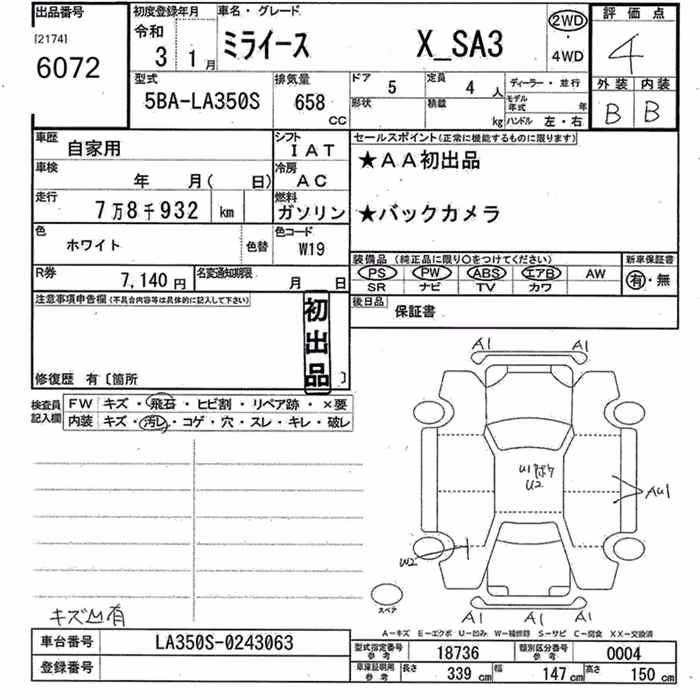 出品番号
[2174]
6072
初度登録年月
令和
3 1月
車名・グレード
ミライース X_SA3
2WD
・
4WD
評価点
4
外装 内装
B B
型式
5BA-LA350S
排気量
658 CC
ドア 5
定員 4人
形状
積載 kg
ディーラー・並行
モデル年式 年
ハンドル 左・右
車歴
自家用
シフト
IAT
車検
年 月( 日)
冷房
AC
走行
7万8千932 km
燃料
ガソリン
色
ホワイト
色替
色コード
W19
R券
7,140円
名変通知期限
月 日
セールスポイント(正常に機能するものに限ります)
★AA初出品
★バックカメラ
装備品(純正品に限り○をつけてください)
PS PW ABS エアB AW
SR ナビ TV カワ
新車保証書
有・無
後日品
保証書
注意事項申告欄(不具合内容等は具体的に記入して下さい)
初出品
修復歴 有〔箇所 〕
検査員
記入欄
FW キズ・飛石・ヒビ割・リペア跡・×要
内装 キズ・汚レ・コゲ・穴・スレ・キレ・破レ
A1 A1
U2
AU1
W2
スペア
A1 A1 A1
キズ凹有
A-キズ E-エクボ U-凹み W-補修跡 S-サビ C-腐食 XX-交換済
車台番号
LA350S-0243063
登録番号
型式指定番号
参考
18736
類別区分番号
参考
0004
車庫証明用
参考
長さ 339 cm
幅 147 cm
高さ 150 cm